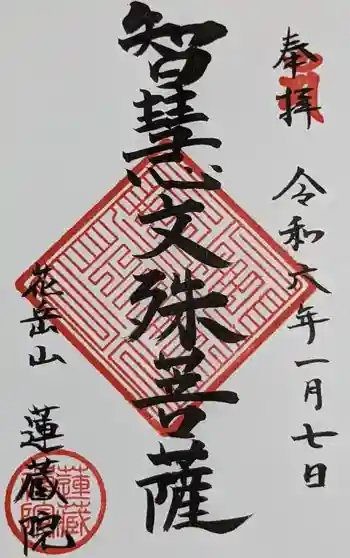 奉拝
令和六年一月七日
智慧文殊菩薩
花岳山
蓮蔵院
蓮蔵院